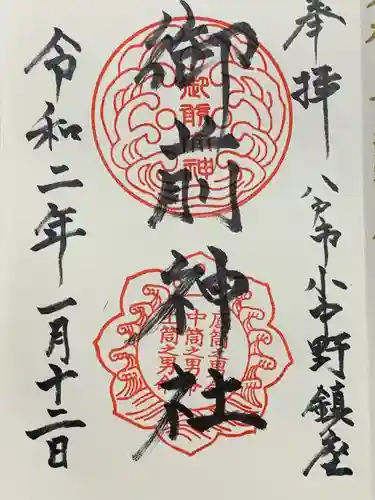 奉拝
八戸市小中野鎮座
御前神社
御前神
底筒之男命
中筒之男命
上筒之男命
令和二年一月十二日